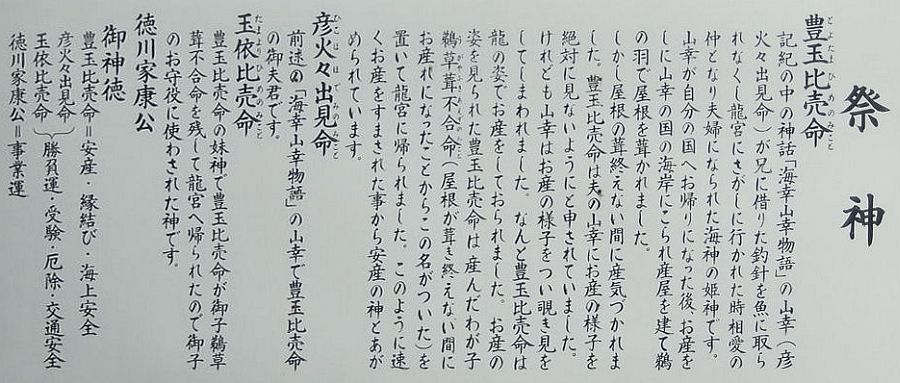 祭神
豊玉比売命
とよたまひめのみこと
記紀の中の神話「海幸山幸物語」の山幸（彦
火々出見命）が兄に借りた釣針を魚に取ら
れなくし龍宮にさがしに行かれた時相愛の
仲となり夫婦になられた海神の姫神です。
山幸が自分の国へお帰りになった後、お産を
しに山幸の国の海岸にこられ産屋を建て鵜
の羽で屋根を葺かれました。
しかし屋根の葺終えない間に産気づかれま
した。豊玉比売命は夫の山幸にお産の様子を
絶対に見ないようにと申されていました。
けれども山幸はお産の様子をつい覗き見を
してしまわれました。なんと豊玉比売命は
龍の姿でお産をしておられました。お産の
姿を見られた豊玉比売命は産んだわが子
鵜草葺不合命（屋根が葺き終えない間に
お産れになったことからこの名がついた）を
置いて龍宮に帰られました。このように速
くお産をすまされた事から安産の神とあが
められています。
彦火々出見命
ひこほほでみのみこと
前述の「海幸山幸物語」の山幸で豊玉比売命
の御夫君です。
玉依比売命
たまよりひめのみこと
豊玉比売命の妹神で豊玉比売命が御子鵜草
葺不合命を残して龍宮へ帰られたので御子
のお守役に使わされた神です。
徳川家康公
御神徳
豊玉比売命＝安産・縁結び・海上安全
彦火々出見命
玉依比売命｝勝負運・受験・厄除・交通安全
徳川家康公＝事業運